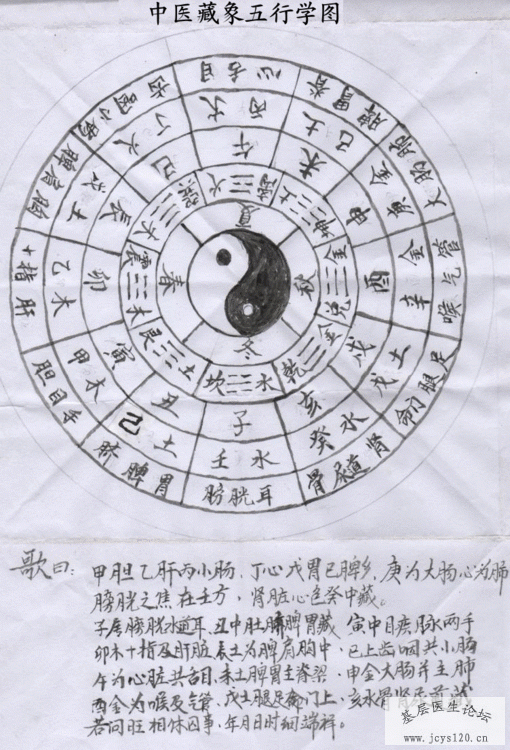 中医藏象五行学图
心舌目
脾胃脊
大肠肺
喉气管
命门腿足
骨尿道肾
膀胱耳
脐脾胃
胆目手
十指肝
脾肩胸
齿咽小肠
丙火
己土
庚金
辛金
戊土
癸水
壬水
己土
甲木
乙木
戊土
丁火
午
未
申
酉
戌
亥
子
丑
寅
卯
辰
巳
坤土
兑金
乾金
坎水
艮土
震木
夏
秋
冬
春
歌曰：甲胆乙肝丙小肠，丁心戊胃己脾乡，庚为大肠心为肺
膀胱之焦在壬方，肾脏心包癸中藏。
子居膀胱水道耳，丑中肚脾胃藏 寅中目疾脉两手
卯木十指及肝脏 辰土为脾肩胸中，巳上齿咽共小肠
午为心脏共舌目，未土脾胃主脊梁，申金大肠并主肺
酉金为喉及气管，戌土腿足命门上，亥水骨肾
若问旺相休囚事，年月日时细端祥。
基层医生论坛
www.jcys120.cn